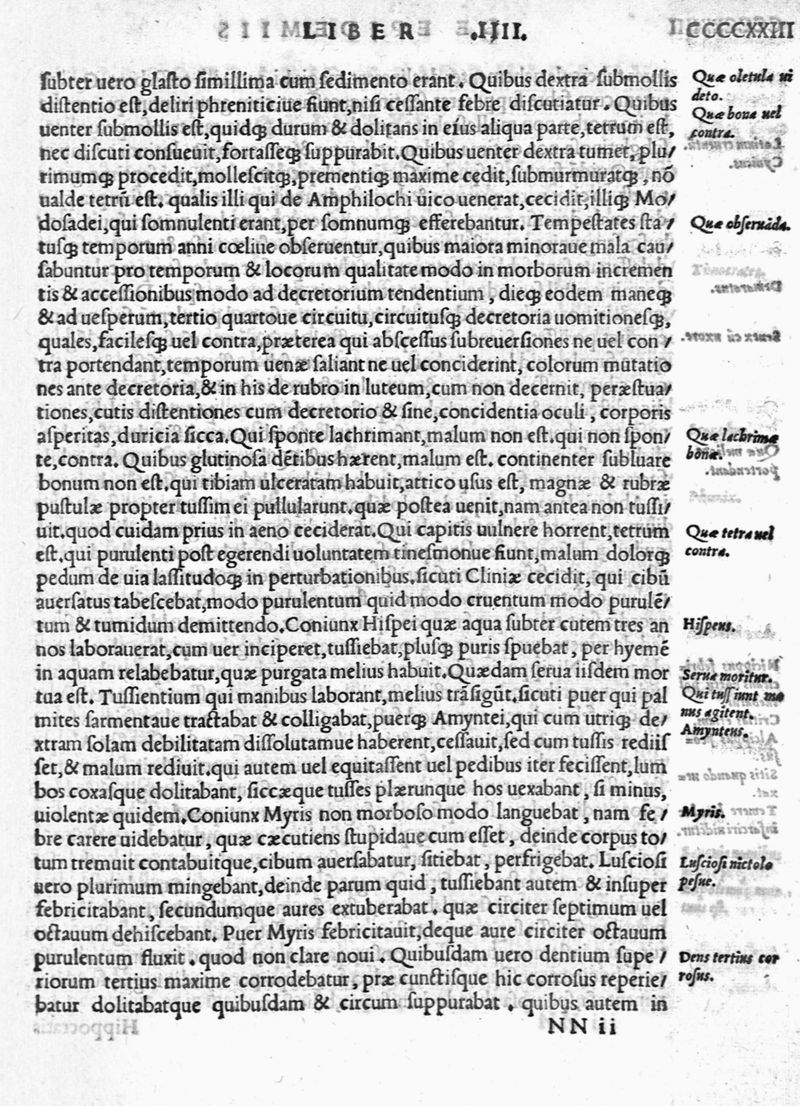 LIBER .IIII. CCCCXXIII
ſubter uero glaſto ſimillima cum ſedimento erant. Quibus dextra ſubmollis
diſtentio eſt, deliri phreniticiue fiunt, niſi ceſſante febre diſcutiatur. Quibus
uenter ſubmollis eſt, quidꝗ durum & dolitans in eius aliqua parte, tetrum eſt,
nec diſcuti conſueuit, fortaſſeꝗ ſuppurabit. Quibus uenter dextra tumet, plu/
rimumꝗ procedit, molleſcitꝗ, prementiꝗ maxime cedit, ſubmurmuratꝗ, nō
ualde tetrū eſt. qualis illi qui de Amphilochi uico uenerat, cecidit, illiꝗ Mo/
doſadei, qui ſomnulenti erant, per ſomnumꝗ efferebantur. Tempeſtates ſta/
tuſꝗ temporum anni cœliue obſeruentur, quibus maiora minoraue mala cau/
ſabuntur pro temporum & locorum qualitate modo in morborum incremen
tis & acceſſionibus modo ad decretorium tendentium, dieꝗ eodem maneꝗ
& ad ueſperum, tertio quartoue circuitu, circuituſꝗ decretoria uomitioneſꝗ,
quales, facileſꝗ uel contra, præterea qui abſceſſus ſubreuerſiones ne uel con/
tra portendant, temporum uenæ ſaliant ne uel conciderint, colorum mutatio
nes ante decretoria, & in his de rubro in luteum, cum non decernit, peræſtua/
tiones, cutis diſtentiones cum decretorio & ſine, concidentia oculi, corporis
aſperitas, duricia ſicca. Qui ſponte lachrimant, malum non eſt. qui non ſpon/
te, contra. Quibus glutinoſa dētibus hærent, malum eſt. continenter ſubluare
bonum non eſt, qui tibiam ulceratam habuit, attico uſus eſt, magnæ & rubræ
puſtulæ propter tuſſim ei pullularunt. quæ poſtea uenit, nam antea non tuſſi/
uit. quod cuidam prius in aeno ceciderat. Qui capitis uulnere horrent, tetrum
eſt. qui purulenti poſt egerendi uoluntatem tineſmonue fiunt, malum dolorꝗ
pedum de uia laſſitudoꝗ in perturbationibus. ſicuti Cliniæ cecidit, qui cibū
auerſatus tabeſcebat, modo purulentum quid modo cruentum modo purulē/
tum & tumidum demittendo. Coniunx Hiſpei quæ aqua ſubter cutem tres an
nos laborauerat, cum uer inciperet, tuſſiebat, pluſꝗ puris ſpuebat, per hyemē
in aquam relabebatur, quæ purgata melius habuit. Quædam ſerua iiſdem mor
tua eſt. Tuſſientium qui manibus laborant, melius trāſigūt. ſicuti puer qui pal
mites ſarmentaue tractabat & colligabat, puerꝗ Amyntei, qui cum utriꝗ de/
xtram ſolam debilitatam diſſolutamue haberent, ceſſauit, ſed cum tuſſis rediiſ
ſet, & malum rediuit. qui autem uel equitaſſent uel pedibus iter feciſſent, lum
bos coxaſque dolitabant, ſiccæque tuſſes plærunque hos uexabant, ſi minus,
uiolentæ quidem. Coniunx Myris non morboſo modo languebat, nam fe/
bre carere uidebatur, quæ cæcutiens ſtupidaue cum eſſet, deinde corpus to/
tum tremuit contabuitque, cibum auerſabatur, ſitiebat, perfrigebat. Luſcioſi
uero plurimum mingebant, deinde parum quid, tuſſiebant autem & inſuper
febricitabant, ſecundumque aures extuberabat. quæ circiter ſeptimum uel
octauum dehiſcebant. Puer Myris febricitauit, deque aure circiter octauum
purulentum fluxit. quod non clare noui. Quibuſdam uero dentium ſupe/
riorum tertius maxime corrodebatur, præ cunctiſque hic corroſus reperie/
batur dolitabatque quibuſdam & circum ſuppurabat. quibus autem in
NN ii
Quæ oletula ui
deto.
Quæ bona uel
contra.
Quæ obſeruāda.
Quæ lachrimæ
bonæ.
Quæ tetra uel
contra.
Hiſpeus.
Serua moritur.
Qui tuſſiunt ma
nus agitent.
Amynteus.
Myris.
Luſcioſi nictolo
peſue.
Dens tertius cor
roſus.